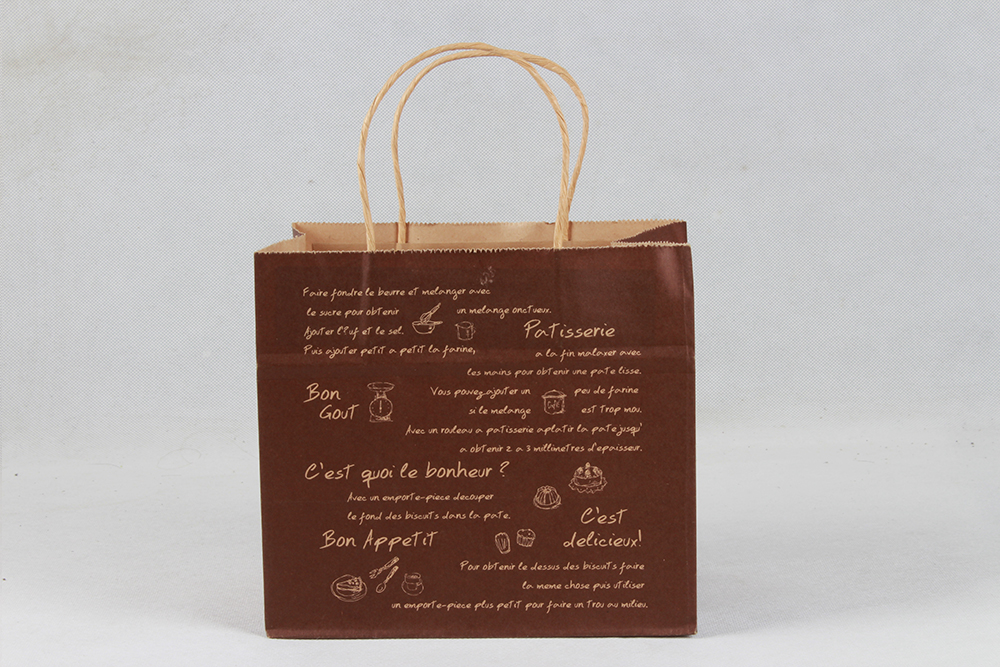 Faire fondre le beurre et melanger avec
le sucre pour obtenir un melange onctueux.
Ajouter l'luf et le sel.
Patisserie
Puis ajouter petit a petit la farine,
a la fin malaxer avec
les mains pour obtenir une pate lisse.
Bon
Gout
Vous pouvez ajouter un peu de farine
si le melange est trop mou.
Avec un rouleau a patisserie aplatir la pate jusqu'
a obtenir 2 a 3 millimetres d'epaisseur.
C'est quoi le bonheur ?
Avec un emporte-piece decouper
le fond des biscuits dans la pate.
C'est
delicieux!
Bon Appetit
Pour obtenir le dessus des biscuits faire
la meme chose puis utiliser
un emporte-piece plus petit pour faire un trou au milieu.